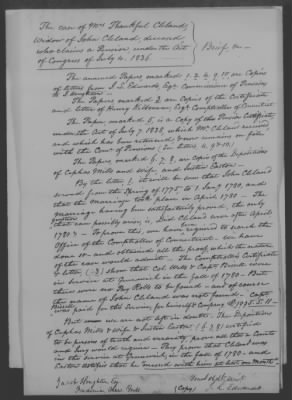 The case of Mrs Thankful Cleland,
Widow of John Cleland, deceased
who claims a Pension under the Act
of Congress of July 4. 1836.
Brief on
The annexed Papers marked 1, 2, 4, 9, 10, are Copies
of letters from J. L. Edwards, Esqr. Commissioner of Pensions
to
The Papers marked 3, are Copies of the Certificate
and letter of Henry Kilbourn, Esqr. Comptroller of Connecticut
The Paper, marked 5, is a Copy of the Pension Certificate
under the Act of July 7. 1838, which Mrs Cleland received
and which has been returned, & now remains on file
with the Comr. of Pensions. (See Letters 4, 9 & 10.)
The Papers marked 6, 7, 8, are Copies of the Depositions
of Cephas Mills and wife, and Justus Easton
By the letter 1, it will be seen that John Cleland
served from the Spring of 1775, to 1 Jany 1780, and
that the marriage took place in April 1780. The
marriage having been satisfactorily proved, the only
that can possibly arise, is, Did Cleland serve after April
1780? To prove this, we have required to search the
Office of the Comptroller of Connecticut. We have
done so and obtained all the proof which the nature
of the case would admit. The Comptroller's Certificate
& letter (3) show that Col. Wells & Capt.
in service at Greenwich in the fall of 1780. But
there were no Pay Rolls to be found and of course
the name of John Cleland was not found.
was paid for this service, by himself
But we are not left in doubt. The Depositions
of Cephas Mills & wife & Justus Easton (6, 7, 8) certified
to be persons of truth and veracity prove all that a Court
and Jury would require. They prove that Cleland was
in the service at Greenwich, in the fall of 1780 and
Easton testifies that he served with him at least one month.
Jacob Houghton Esq.
(Copy)
J. L. Edwards